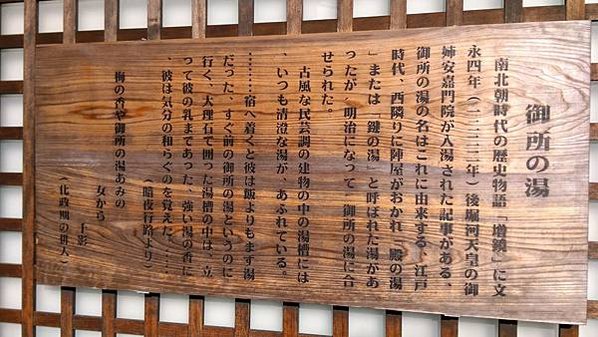 御所の湯
南北朝時代の歴史物語「増鏡」に文
永四年（一二二二年）後堀河天皇の御
姉安嘉門院が入湯された記事がある、
御所の湯の名はこれに由来する、江戸
時代、西隣りに陣屋がおかれ「殿の湯
」または「鍵の湯」と呼ばれた湯があ
ったが、明治になって、御所の湯に合
せられた。
古風な民芸調の建物の中の湯槽には
、いつも清澄な湯が、あふれている。
………宿へ着くと彼は飯よりもまず湯
だった、すぐ前の御所の湯というのに
行く、大理石で囲った湯槽の中は、立
って彼の乳まであった、強い湯の香に
、彼は気分の和らぐのを覚えた、……
（暗夜行路より）
梅の香や御所の湯あみの
女から 千影
（化政期の俳人）